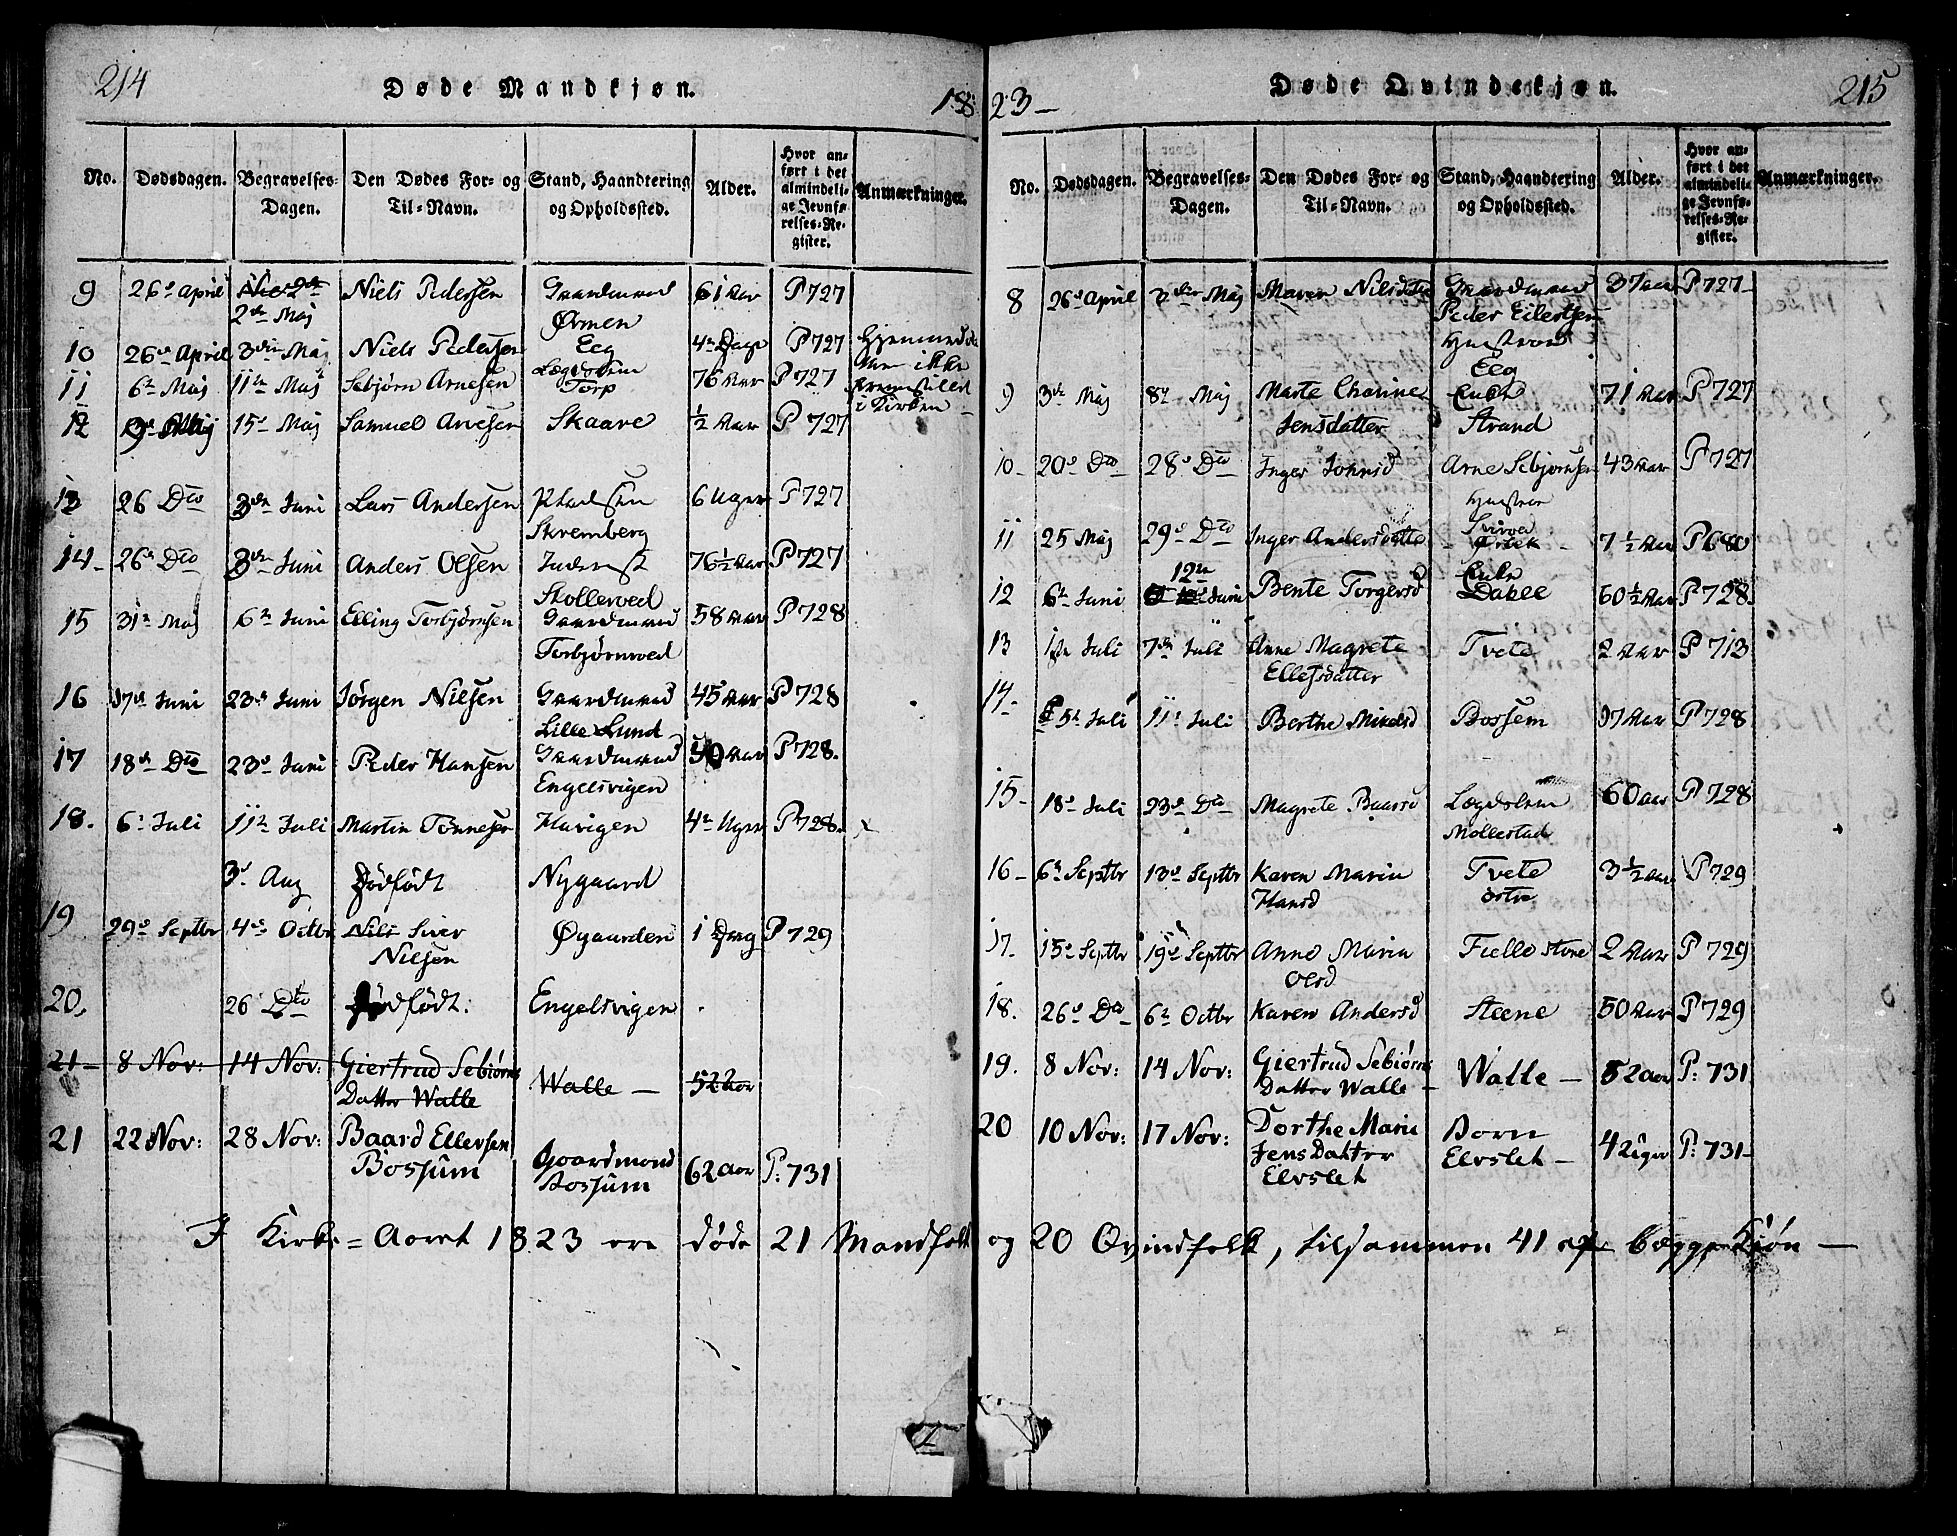 214
Døde Mandkjøn.
18
No. Dødsdagen. Begravelses-Dagen. Den Dødes For- og Til-Navn. Stand, Haandtering og Opholdssted. Alder. Hvor anført i det almindelige Jevnførelses-Register. Anmærkninger.
9 26de April 2den Maj Niels Pedersen Gaardmand Ørmen 61 Aar P 727
10 26de April 3die Maj Niels Pedersen Eeg 4re Dage P 727 Hjemmedøbt ikke fremstillet i Kirken
11 6te Maj 11te Maj Sebjørn Arnesen Lægdslem Torp 76 Aar P 727
12 9de Maj 15de Maj Samuel Arvesen Skaare ½ Aar P 727
13 26 Dto 3die Juni Lars Andersen Skremberg 6 Uger P 727
14 26de Dto 3die Juni Anders Olsen Inderst Skollerød 76½ Aar P 727
15 31te Maj 6te Juni Elling Torbjørnsen Gaardmand Torbjørnrød 58 Aar P 728
16 17de Juni 23de Juni Jørgen Nielsen Gaardmand Lille Lund 45 Aar P 728
17 18de Dto 23de Juni Peder Hansen Gaardmand Engelsvigen Aar P 728.
18. 6te Juli 11te Juli Martin Tønnesen Havigen 4re Uger P 728.
3de Aug Dödfödt Nygaard
19 29de Septbr 4de Octbr Nils Siver Nielsen Øgaarden 1 Dag P 729
20. 26 Dto Dödfödt: Engelsvigen
21 8 Nov: 14 Nov: Giertrud Sebiørns Datter Walle Walle 52 Aar
21 22 Nov: 28 Nov: Baard Ellersen Bossum Gaardmand Bossum 62 Aar P: 731
I Kirke-Aaret 1823 ere døde 21 Mandfolk
215
Døde Qvindekjøn.
23
No. Dødsdagen. Begravelses-Dagen. Den Dødes For- og Til-Navn. Stand, Haandtering og Opholdssted. Alder. Hvor anført i det almindelige Jevnførelses-Register. Anmærkninger.
8 26de April 3die Maj Maren Nilsdatter Gaardmand Peder Eilertsens Hustroe Eeg 37 Aar P 727
9 3die Maj 8de Maj Marte Chatrine Jensdatter Enke Strand 71 Aar P 727
10 20de Dto 28de Dto Inger Johnsd Arne Sebjørnsen Hustroe 43 Aar P 727
11 25 Maj 29de Dto Inger Andersdatter Ørbek 7½ Aar P 680
12 6te Juni 12te Juni Bente Torgersd Enke Dahle 60½ Aar P 728.
13 1ste Juli 7de Juli Anne Magrete Ellefsdatter Tvete 2 Aar P 713
14 5te Juli 11te Juli Berthe Mikelsd Bossem 97 Aar P 728
15 18de Juli 23de Dto Magrete Baarsd Lægdslem Mollestad 60 Aar P 728
16 6te Septbr 13de Septbr Karen Maria Hansd Tvete østre 3½ Aar P 729
17. 15de Septbr 19de Septbr Anne Maria Olsd Fielle store 2 Aar P 729
18. 26de Dto 6te Octbr Karen Andersd Steene 50 Aar P 729
19. 8 Nov: 14 Nov: Giertrud Sebiørns Datter Walle Walle 52 Aar P: 731
20 10 Nov: 17 Nov: Dorthe Marie Jens Datter Elvslet Barn Elvslet 4 Uger P: 731
og 20 Qvindfolk, tilsammen 41 af begge Kiøn